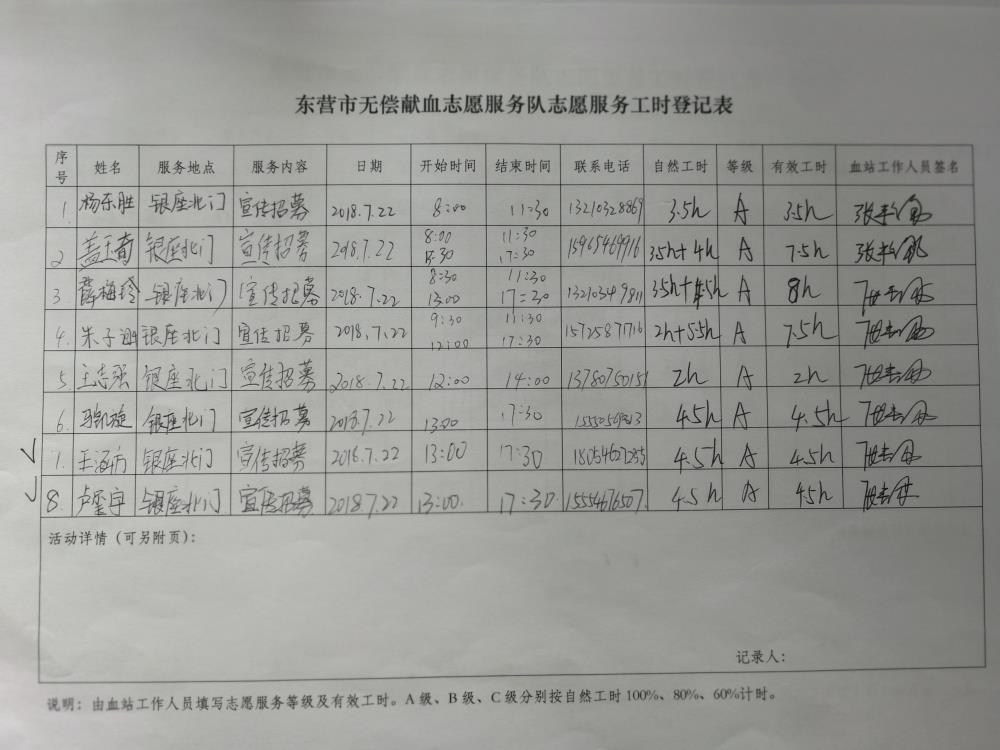 东营市无偿献血志愿服务队志愿服务工时登记表
序号 姓名 服务地点 服务内容 日期 开始时间 结束时间 联系电话 自然工时 等级 有效工时 血站工作人员签名
1. 杨东胜 银座北门 宣传招募 2018.7.22 8:00 11:30 13210328869 3.5h A 3.5h
2 银座北门 宣传招募 2018.7.22 8:00 11:30 13:30 17:30 15965469916 3.5h+4h A 7.5h
3 薛梅玲 银座北门 宣传招募 2018.7.22 8:30 11:30 13:00 17:30 13210349811 A 8h
4. 银座北门 宣传招募 2018.7.22 9:30 11:30 12:00 17:30 15725871716 2h+5.5h A 7.5h
5. 王志强 银座北门 宣传招募 2018.7.22 12:00 14:00 13780750151 2h A 2h
6. 骆凯旋 银座北门 宣传招募 2018.7.22 13:00 17:30 4.5h A 4.5h
7. 王涵方 银座北门 宣传招募 2018.7.22 13:00 17:30 4.5h A 4.5h
8. 卢玺宇 银座北门 宣传招募 2018.7.22 13:00. 17:30. 15554676507. 4.5h A 4.5h
活动详情（可另附页）：
记录人：
说明：由血站工作人员填写志愿服务等级及有效工时。A级、B级、C级分别按自然工时100%、80%、60%计时。